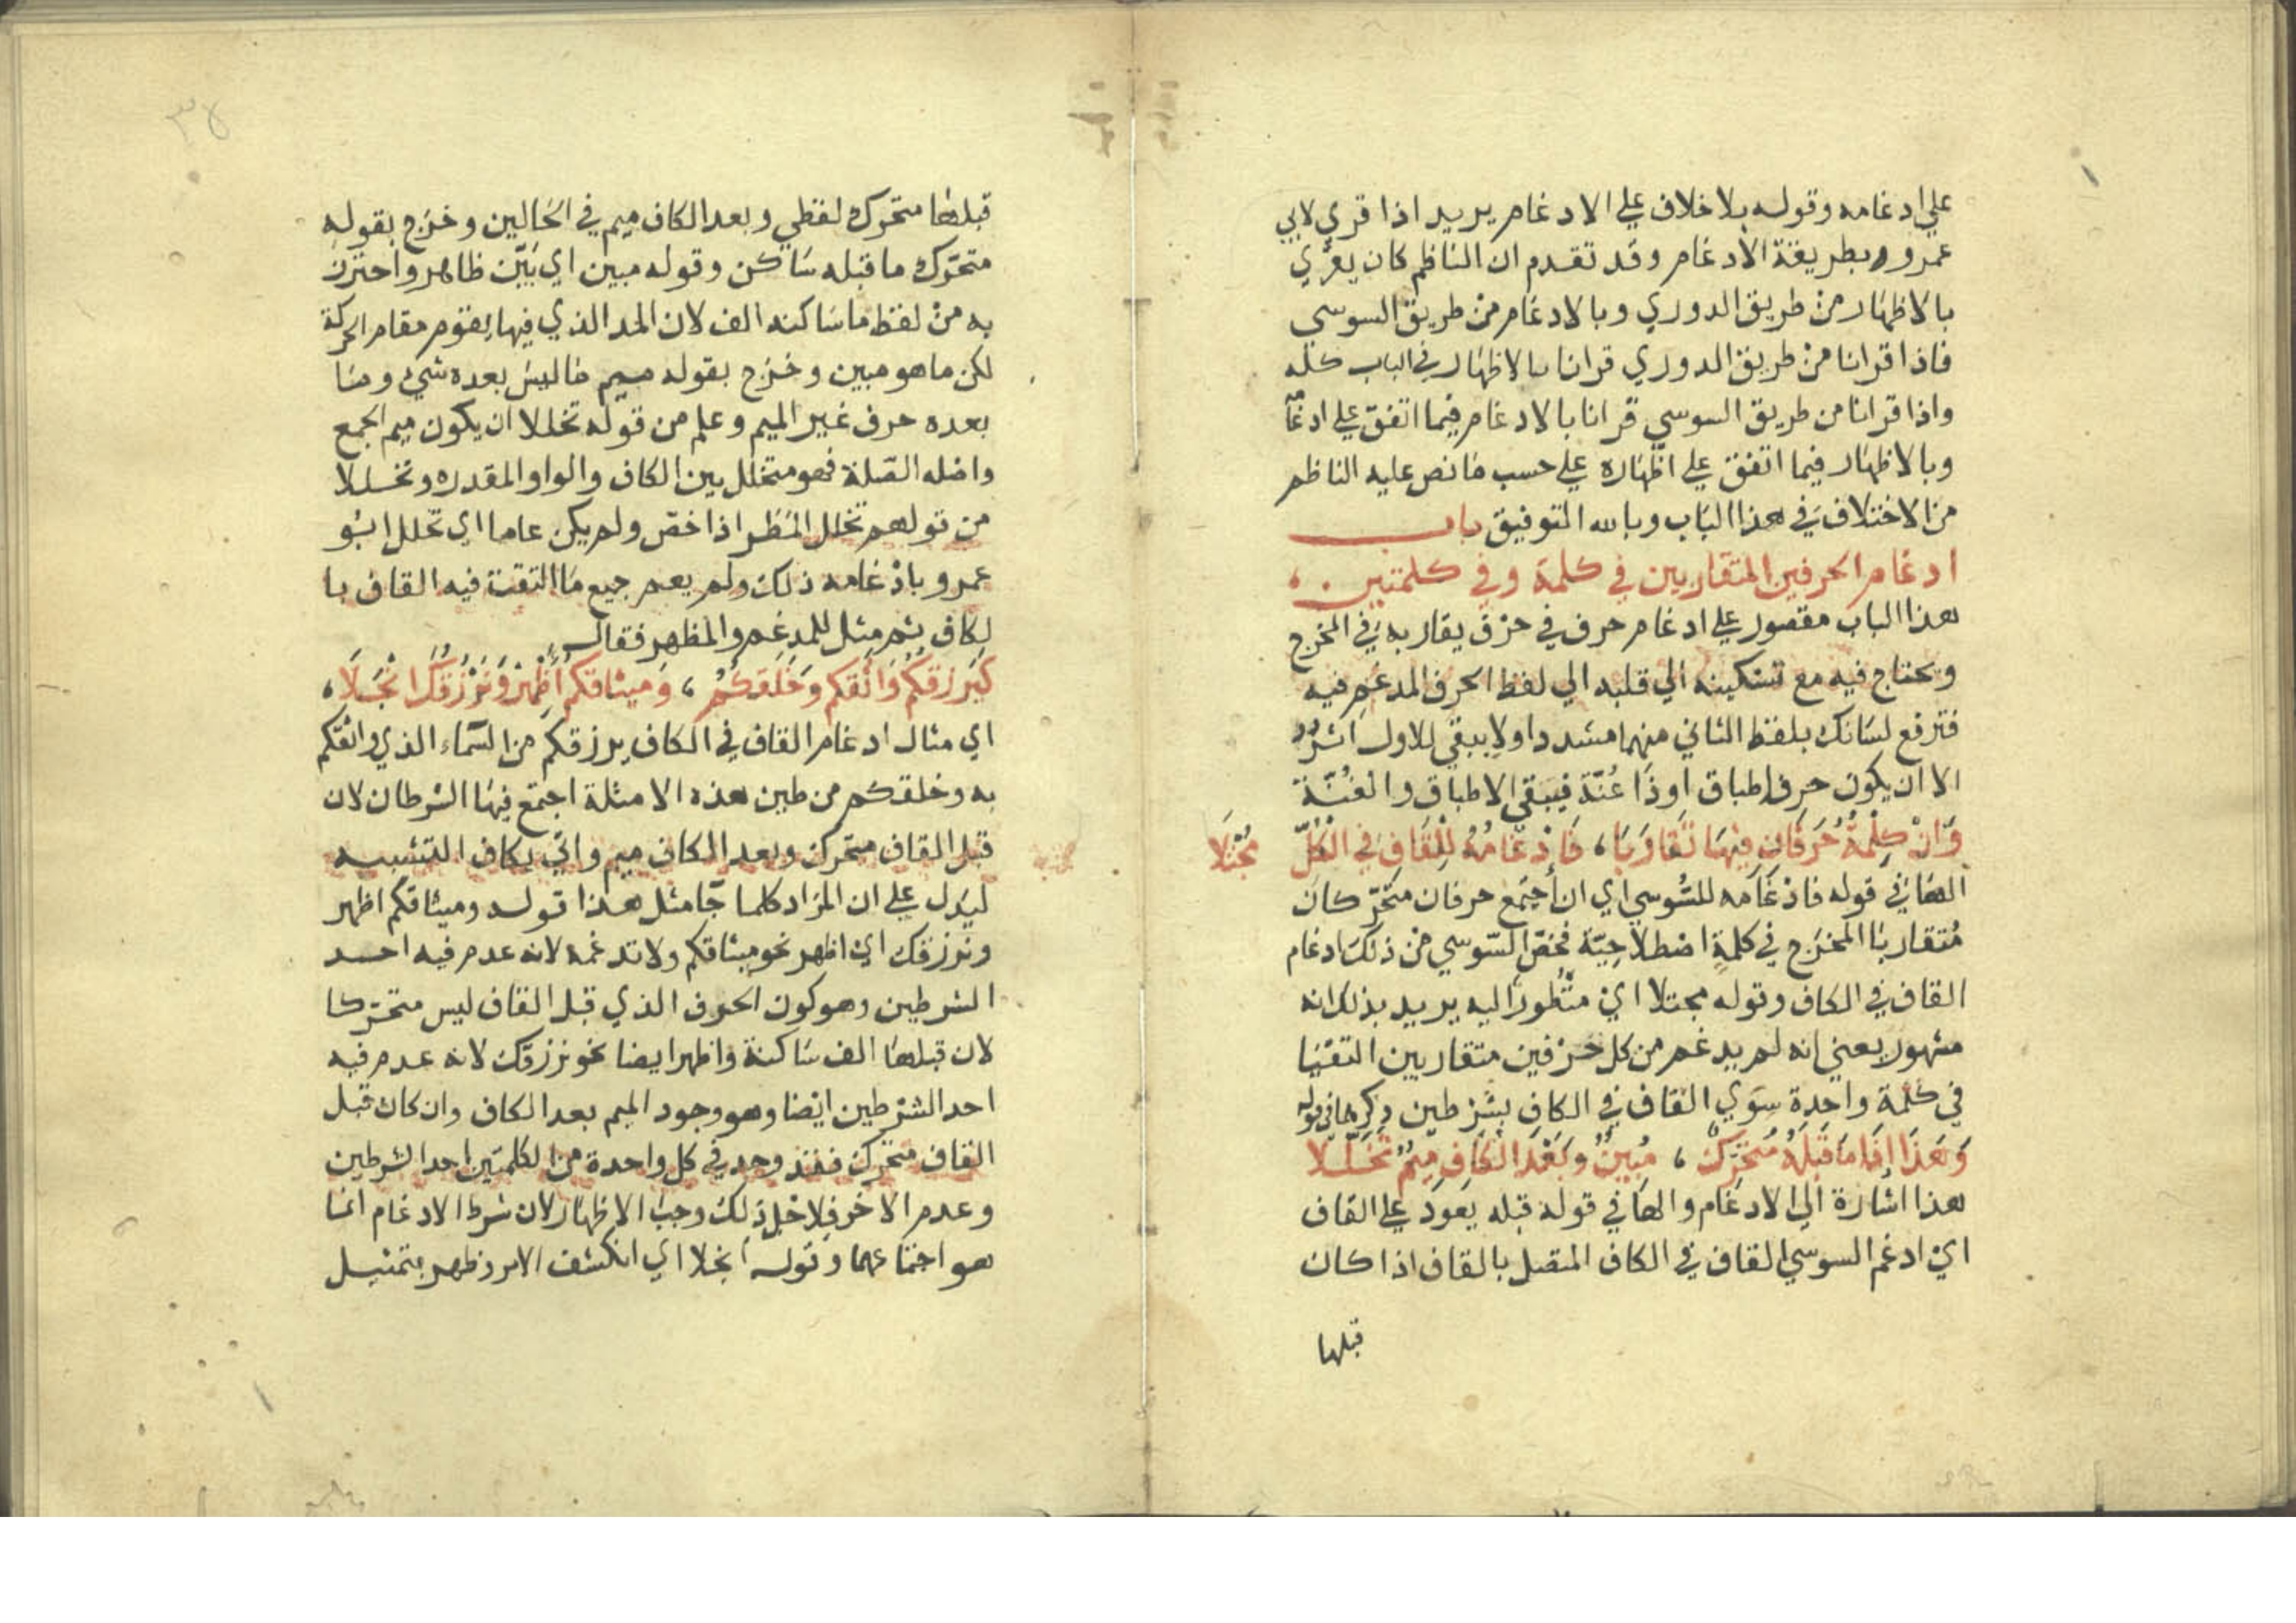 علي ادغامه وقوله بلا خلاف علي الادغام يريد اذا قري لابي
عمرو بطريقة الادغام وقد تقدم ان الناظم كان يقري
بالاظهار من طريق الدوري وبالادغام من طريق السوسي
فاذا قرانا من طريق الدوري قرانا بالاظهار في الباب كله
واذا قرانا من طريق السوسي قرانا بالادغام فيما اتفق علي ادغامه
وبالاظهار فيما اتفق علي اظهاره علي حسب ما نص عليه الناظم
من الاختلاف في هذا الباب وبالله التوفيق باب
ادغام الحرفين المتقاربين في كلمة وفي كلمتين
هذا الباب مقصور علي ادغام حرف في حرف يقاربه في المخرج
ويحتاج فيه مع تسكينه الي قلبه الي لفظ الحرف المدغم فيه
فترفع لسانك بلفظ الثاني منهما مشددا ولا يبقي للاول اثر
الا ان يكون حرف اطباق او ذا غنة فيبقي الاطباق والغنة
وَاِنْ كِلْمَةٌ حَرْفَانِ فِيْهَا تَقَارَبَا، فَاِدْغَامُهُ لِلْقَافِ فِي الْكَافِ مُجْتَلَا
الهاء في قوله فادغامه للسوسي اي ان اجتمع حرفان متحركان
متقاربا المخرج في كلمة اصطلاحية فخص السوسي من ذلك ادغام
القاف في الكاف وقوله مجتلا اي منظورا اليه يريد بذلك انه
مشهور يعني انه لم يدغم من كل حرفين متقاربين التقيا
في كلمة واحدة سوي القاف في الكاف بشرطين ذكرهما في قوله
وَهَذَا اِذَا مَا قَبْلَهُ مُتَحَرِّكٌ، مُبِينٌ وَبَعْدَ الْكَافِ مِيمٌ تَخَلَّلَا
هذا اشارة الي الادغام والها في قوله قبله يعود علي القاف
اي ادغم السوسي القاف في الكاف المتصل بالقاف اذا كان
قبلها
قبلها متحرك لفظي وبعد الكاف ميم في الحالين وخرج بقوله
متحرك ما قبله ساكن وقوله مبين اي بين ظاهر واحترز
به من لفظ ما ساكنه الف لان المد الذي فيها يقوم مقام الحركة
لكن ما هو مبين وخرج بقوله ميم ما ليس بعده شيء وما
بعده حرف غير الميم وعلم من قوله تخللا ان يكون ميم الجمع
واصله الصلة فهو متخلل بين الكاف والواو المقدره وتخللا
من قولهم تخلل المطر اذا خص ولم يكن عاما اي تخلل ابو
عمرو بادغامه ذلك ولم يعم جميع ما التقت فيه القاف با
لكاف ثم مثل للمدغم والمظهر فقال
كَيَرْزُقكُّمُ وَاثَقكُّمُ وَخَلَقكُّمُ، وَمِيثَاقَكُمْ أَظْهِرْ وَنَرْزُقُكَ انْجَلَا،
اي مثال ادغام القاف في الكاف يرزقكم من السماء الذي واثقكم
به وخلقكم من طين هذه الامثلة اجتمع فيها الشرطان لان
قبل القاف متحرك وبعد الكاف ميم واتي بكاف التشبيه
ليدل علي ان المراد كلما جا مثل هذا قوله وميثاقكم اظهر
ونرزقك اي اظهر نحو ميثاقكم ولا تدغمه لانه عدم فيه احد
الشرطين وهو كون الحرف الذي قبل القاف ليس متحركا
لان قبلها الف ساكنة واظهر ايضا نحو نرزقك لانه عدم فيه
احد الشرطين ايضا وهو وجود الميم بعد الكاف وان كان قبل
القاف متحرك فقد وجد في كل واحدة من الكلمتين احد الشرطين
وعدم الاخر فلاجل ذلك وجب الاظهار لان شرط الادغام انما
هو اجتماعهما وقوله انجلا اي انكشف الامر وظهر بتمثيل